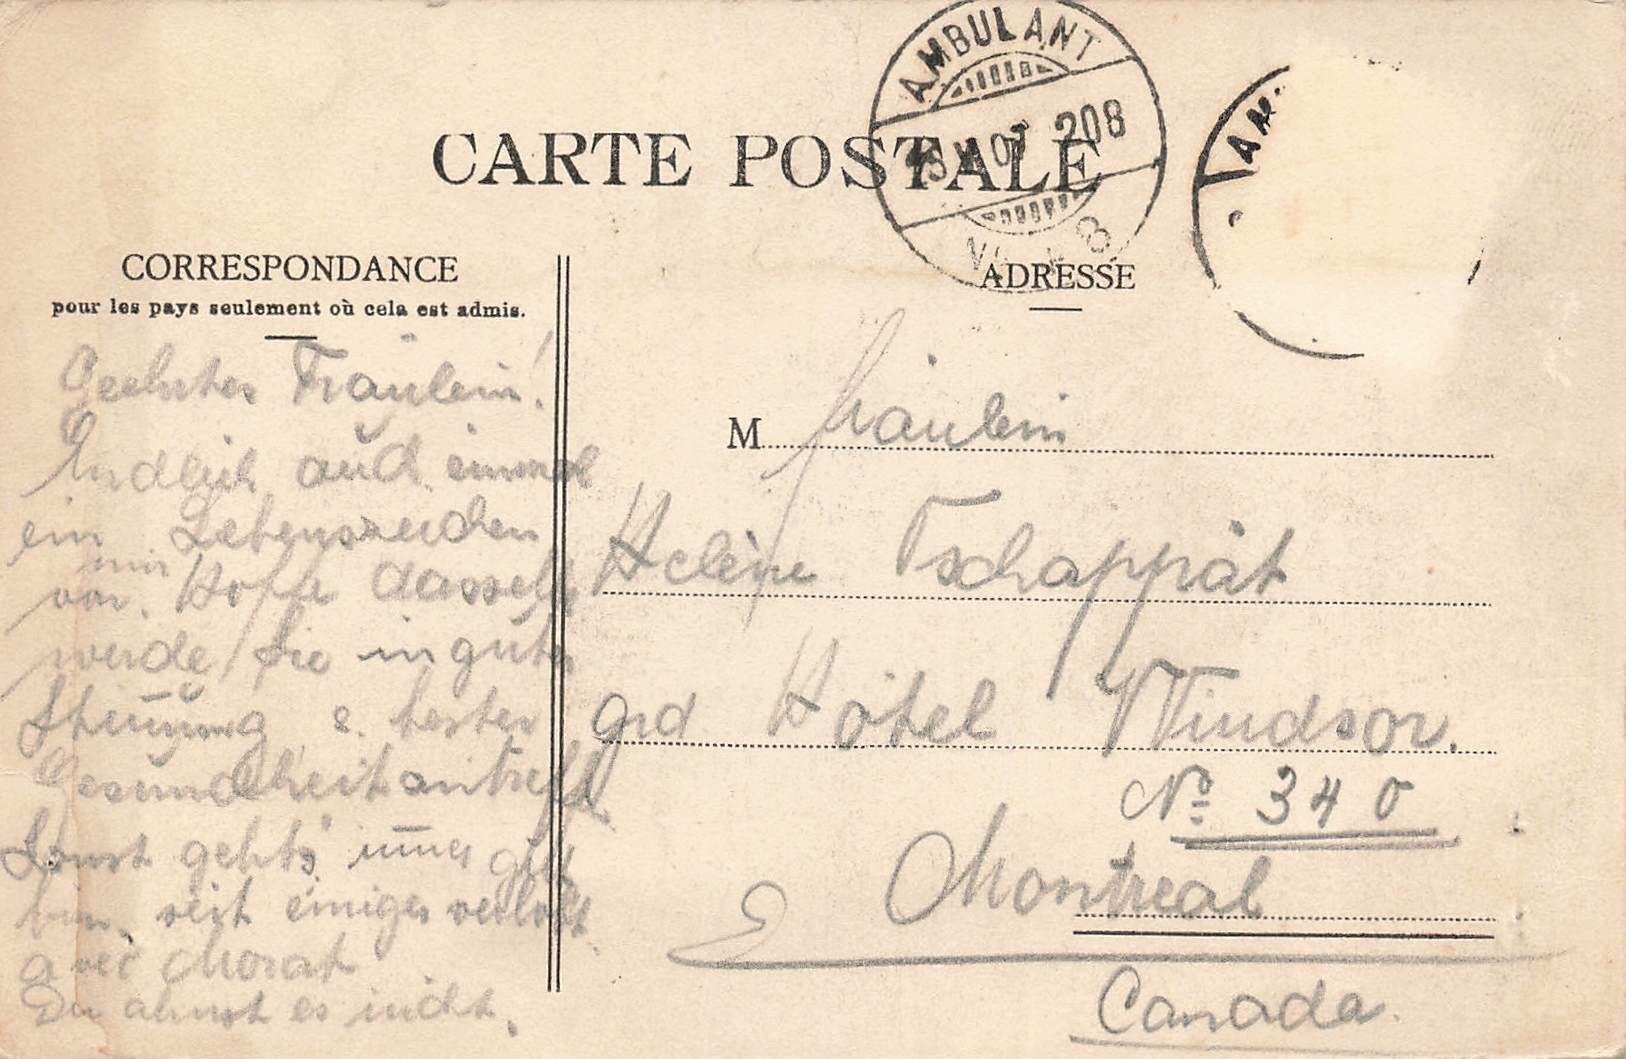 AMBULANT
208
AM
CARTE POSTALE
CORRESPONDANCE
pour les pays seulement où cela est admis.
ADRESSE
Geehrtes Fräulein!
Endlich auch einmal
ein Lebenszeichen
von mir. Hoffe dasselbe
werde Sie in guter
Stimmung & bester
Gesundheit antreffen
Sonst geht's immer gut
bin seit einiger verlobt
avec Morat
Du ahnst es nicht.
M Fräulein
Helène Tschappät
grd Hôtel Windsor.
No 340
Montreal
Canada.